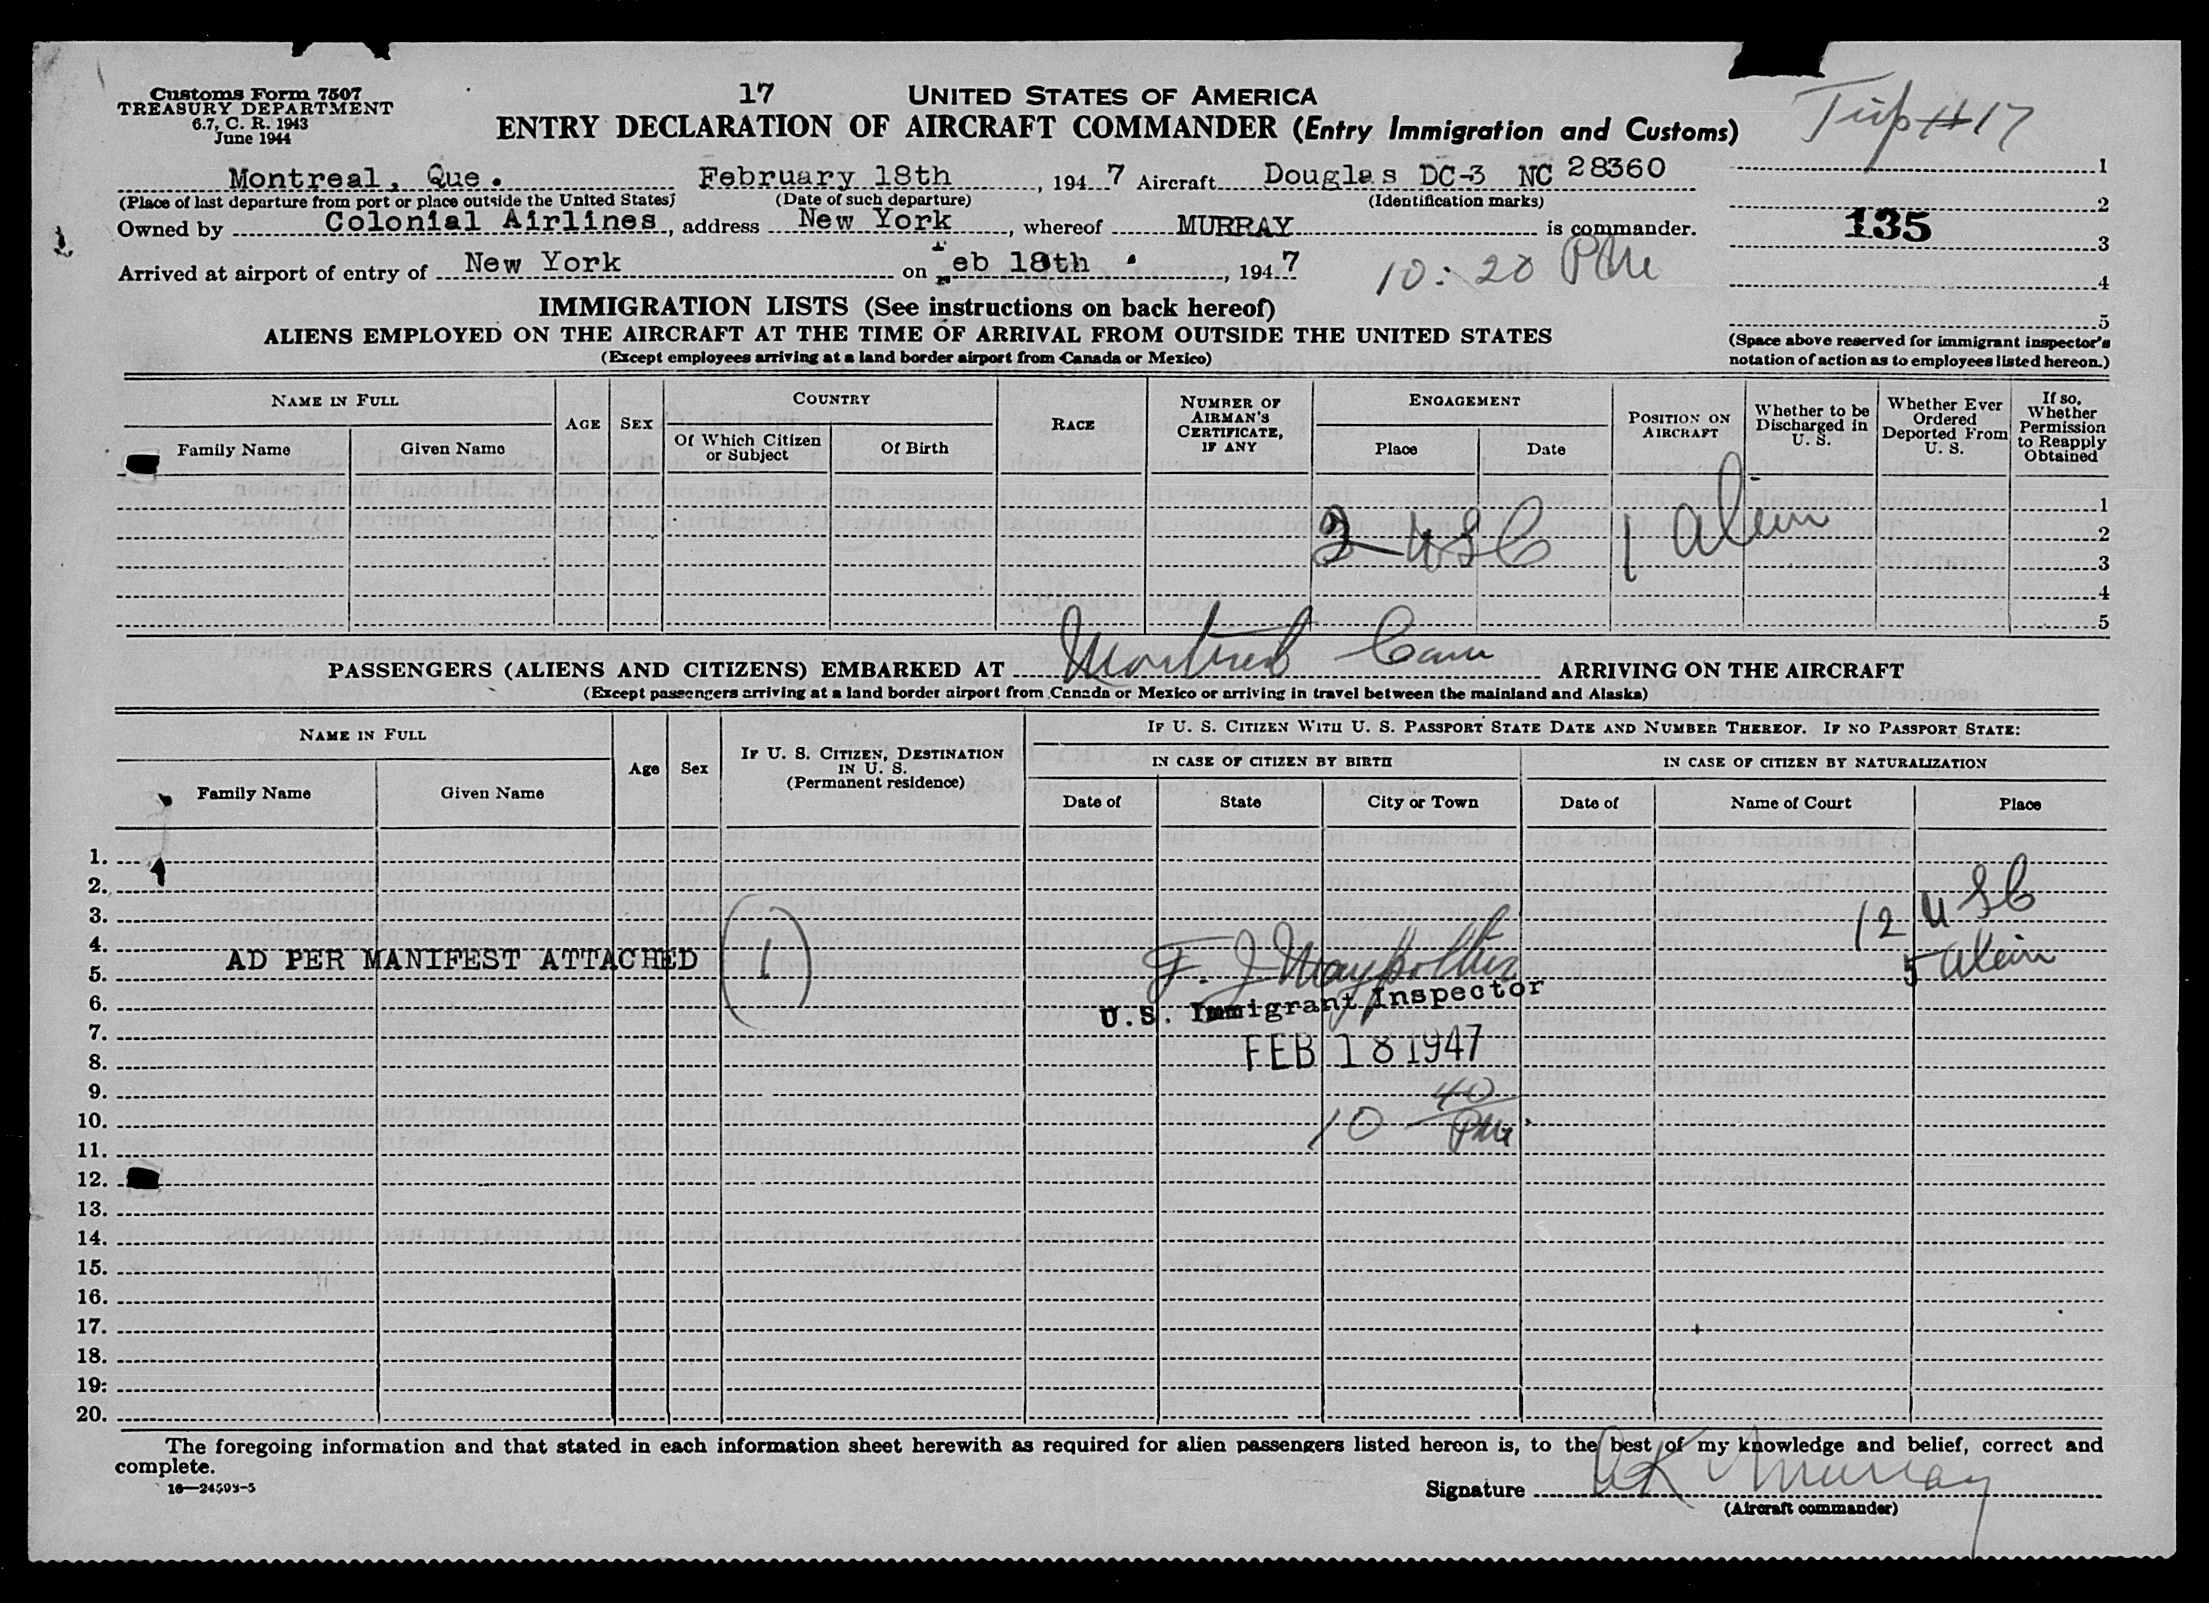 Customs Form 7507
TREASURY DEPARTMENT
6.7, C. R. 1943
June 1944
17
UNITED STATES OF AMERICA
ENTRY DECLARATION OF AIRCRAFT COMMANDER (Entry Immigration and Customs)
Trip #17
Montreal, Que. February 18th, 1947 Aircraft Douglas DC-3 NC 28360
(Place of last departure from port or place outside the United States) (Date of such departure) (Identification marks)
Owned by Colonial Airlines, address New York, whereof MURRAY is commander.
Arrived at airport of entry of New York on Feb 18th, 1947 10:20 PM
1
2
135
3
4
5
(Space above reserved for immigrant inspector's
notation of action as to employees listed hereon.)
IMMIGRATION LISTS (See instructions on back hereof)
ALIENS EMPLOYED ON THE AIRCRAFT AT THE TIME OF ARRIVAL FROM OUTSIDE THE UNITED STATES
(Except employees arriving at a land border airport from Canada or Mexico)
NAME IN FULL
Family Name Given Name
AGE SEX
COUNTRY
Of Which Citizen
or Subject
Of Birth
RACE
NUMBER OF
AIRMAN'S
CERTIFICATE,
IF ANY
ENGAGEMENT
Place Date
POSITION ON
AIRCRAFT
Whether to be
Discharged in
U. S.
Whether Ever
Ordered
Deported From
U. S.
If so,
Whether
Permission
to Reapply
Obtained
1
2
3
4
5
2 USC 1 Alien
PASSENGERS (ALIENS AND CITIZENS) EMBARKED AT Montreal Can ARRIVING ON THE AIRCRAFT
(Except passengers arriving at a land border airport from Canada or Mexico or arriving in travel between the mainland and Alaska)
NAME IN FULL
Family Name Given Name
Age Sex
IF U. S. CITIZEN, DESTINATION
IN U. S.
(Permanent residence)
IF U. S. CITIZEN WITH U. S. PASSPORT STATE DATE AND NUMBER THEREOF. IF NO PASSPORT STATE:
IN CASE OF CITIZEN BY BIRTH IN CASE OF CITIZEN BY NATURALIZATION
Date of State City or Town Date of Name of Court Place
1.
2.
3. 12 USC
4.
AD PER MANIFEST ATTACHED (1) 5 Alien
5.
6.
U.S. Immigrant Inspector
7.
FEB 18 1947
8.
9.
10 40 PM
10.
11.
12.
13.
14.
15.
16.
17.
18.
19.
20.
The foregoing information and that stated in each information sheet herewith as required for alien passengers listed hereon is, to the best of my knowledge and belief, correct and
complete.
16—24593-5
Signature Murray
(Aircraft commander)